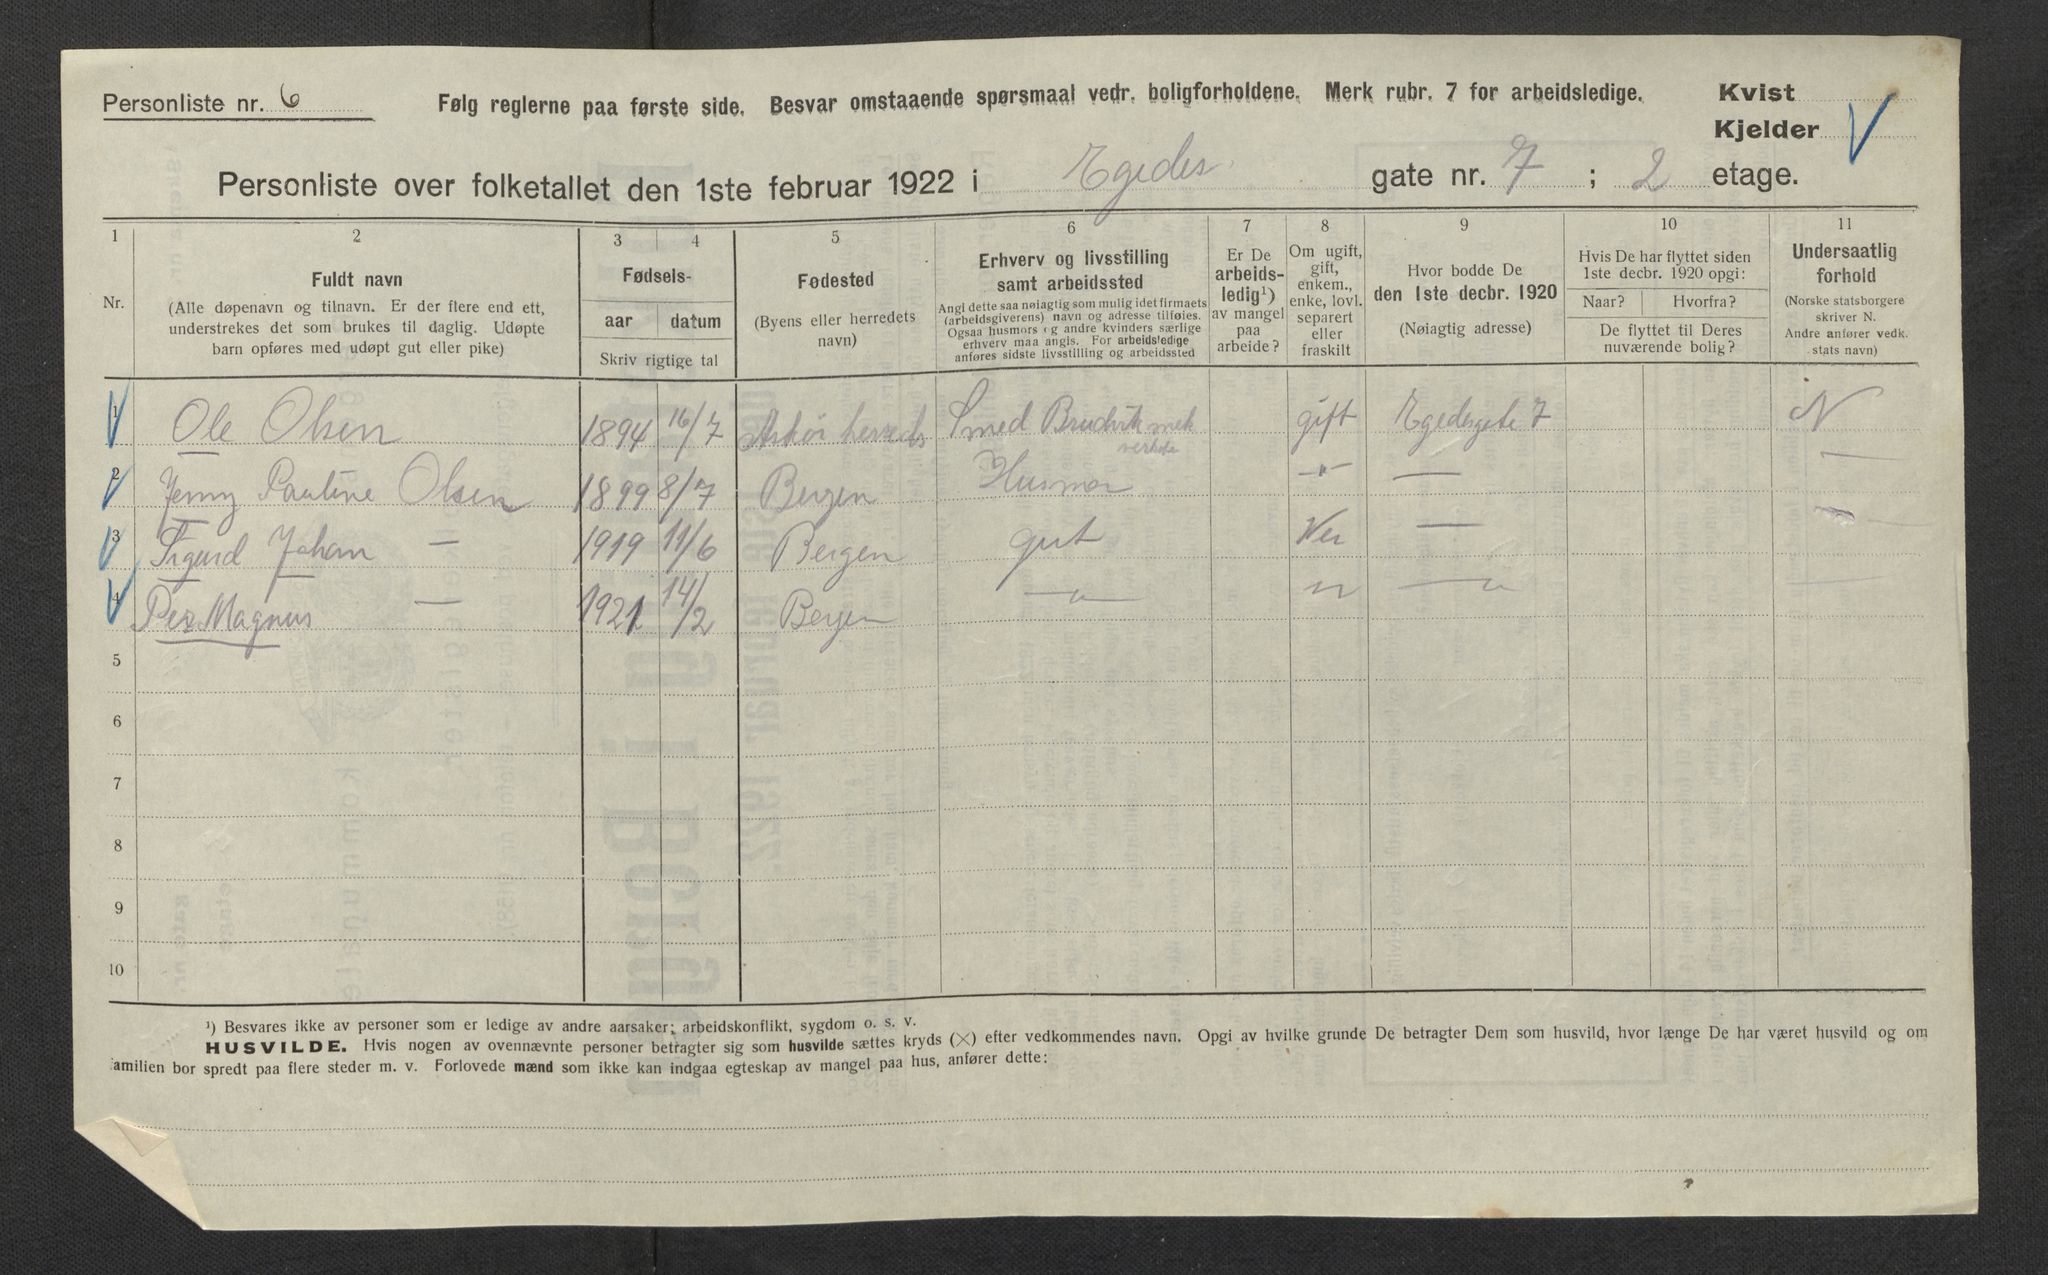 Personliste nr. 6
Følg reglerne paa første side. Besvar omstaaende spørsmaal vedr. boligforholdene. Merk rubr. 7 for arbeidsledige.
Kvist
Kjelder V
Personliste over folketallet den 1ste februar 1922 i Egedes gate nr. 7 ; 2 etage.
1 2 3 4 5 6 7 8 9 10 11
Nr.
Fuldt navn
(Alle døpenavn og tilnavn. Er der flere end ett,
understrekes det som brukes til daglig. Udøpte
barn opføres med udøpt gut eller pike)
Fødsels-
aar datum
Skriv rigtige tal
Fødested
(Byens eller herredets
navn)
Erhverv og livsstilling
samt arbeidssted
Angi dette saa nøiagtig som mulig idet firmaets
(arbeidsgiverens) navn og adresse tilføies.
Ogsaa husmors og andre kvinders særlige
erhverv maa angis. For arbeidsledige
anføres sidste livsstilling og arbeidssted
Er De
arbeids-
ledig¹)
av mangel
paa
arbeide?
Om ugift,
gift,
enkem.,
enke, lovl.
separert
eller
fraskilt
Hvor bodde De
den 1ste decbr. 1920
(Nøiagtig adresse)
Hvis De har flyttet siden
1ste decbr. 1920 opgi:
Naar? Hvorfra?
De flyttet til Deres
nuværende bolig?
Undersaatlig
forhold
(Norske statsborgere
skriver N.
Andre anfører vedk.
stats navn)
V 1 Ole Olsen 1894 16/7 Askøi herreds Smed Brudvik mek gift Egedesgate 7 N
V 2 Jenny Pauline Olsen 1899 8/7 Bergen Husmor -"- — —
V 3 Sigurd Johan — 1919 11/6 Bergen gut — —
V 4 Per Magnus — 1921 14/2 Bergen —"— " —" —
5
6
7
8
9
10
¹) Besvares ikke av personer som er ledige av andre aarsaker: arbeidskonflikt, sygdom o. s. v.
HUSVILDE. Hvis nogen av ovennævnte personer betragter sig som husvilde sættes kryds (×) efter vedkommendes navn. Opgi av hvilke grunde De betragter Dem som husvild, hvor længe De har været husvild og om
amilien bor spredt paa flere steder m. v. Forlovede mænd som ikke kan indgaa egteskap av mangel paa hus, anfører dette: